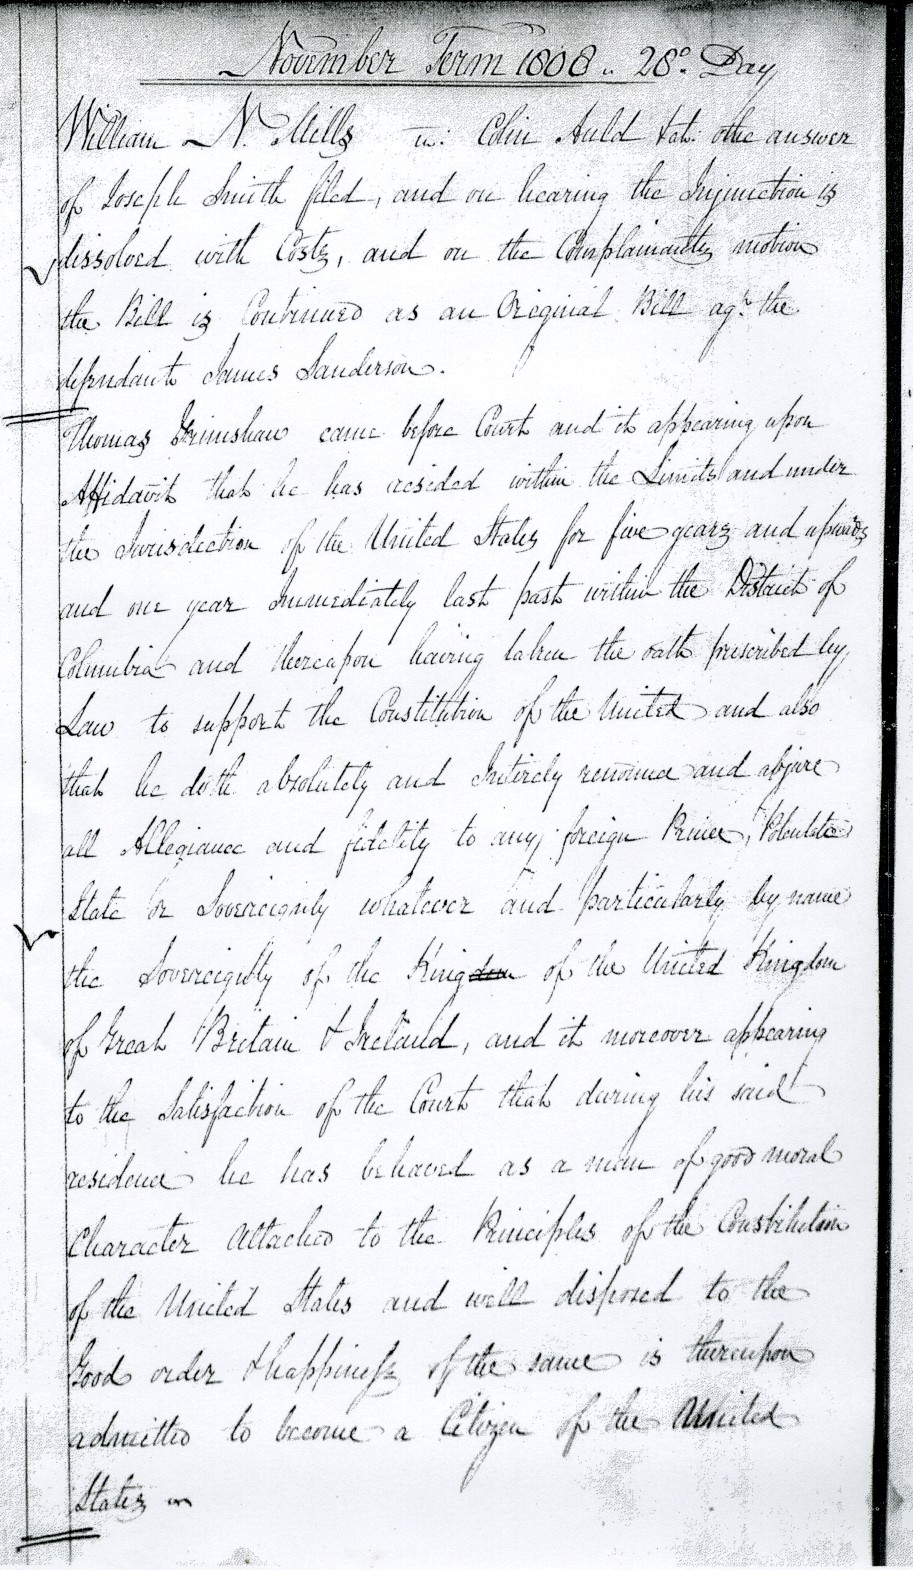 November Term 1808 .. 28º Day
William N. Mills vs: Colin Auld &ah: the answer
of Joseph Smith filed, and on hearing the Injunction is
dissolved with Costs, and on the Complainants motion
the Bill is Continued as an Original Bill agt. the
defendant James Sanderson.
Thomas Grimshaw came before Court and it appearing upon
Affidavit that he has resided within the Limits and under
the Jurisdiction of the United States for five years and upwards
and one year Immediately last past within the District of
Columbia and thereupon having taken the oath prescribed by
Law to support the Constitution of the United and also
that he doth absolutely and Intirely renounce and abjure
all Allegiance and fidelity to any foreign Prince, Potentate
State or Sovereignty whatever and particularly by name
the Sovereignty of the Kingdom of the United Kingdom
of Great Britain & Ireland, and it moreover appearing
to the Satisfaction of the Court that during his said
residence he has behaved as a man of good moral
Character Attached to the Principles of the Constitution
of the United States and well disposed to the
Good order & happiness of the same is thereupon
admitted to become a Citizen of the United
States